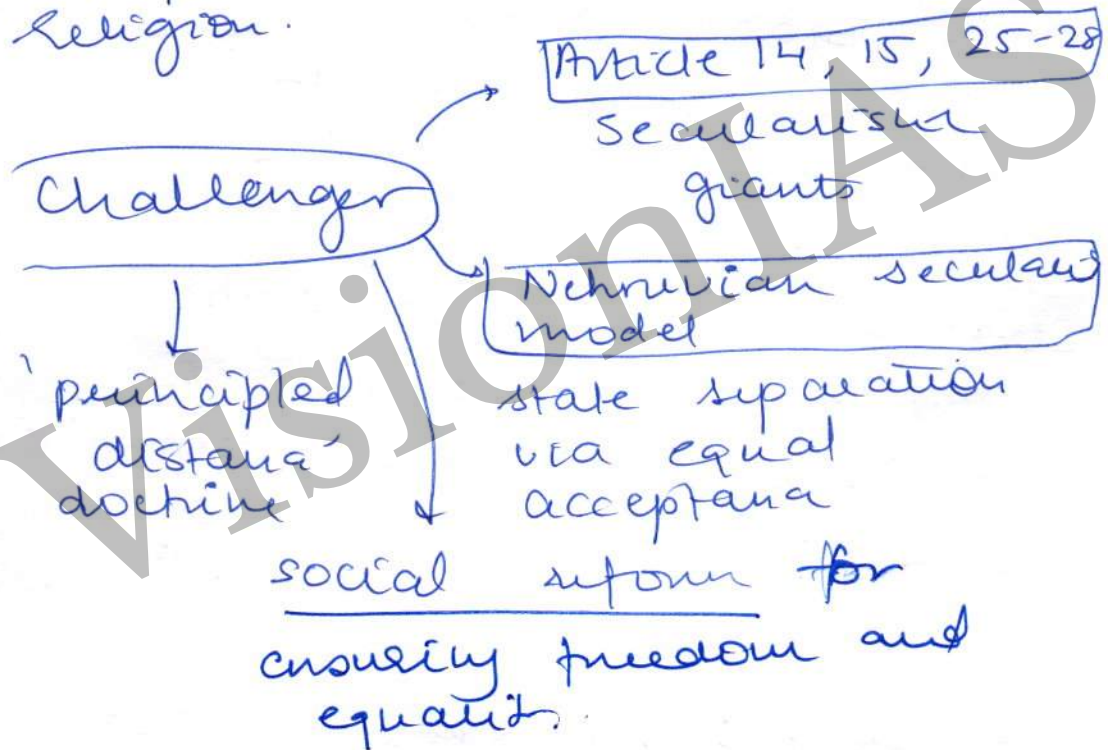 Religion.
Article 14, 15, 25-28
secularism
giants
Challenges
Nehruvian secular
model
'principled
distance'
doctrine
state separation
via equal
acceptance
social reform for
ensuring freedom and
equality.
VisionIAS